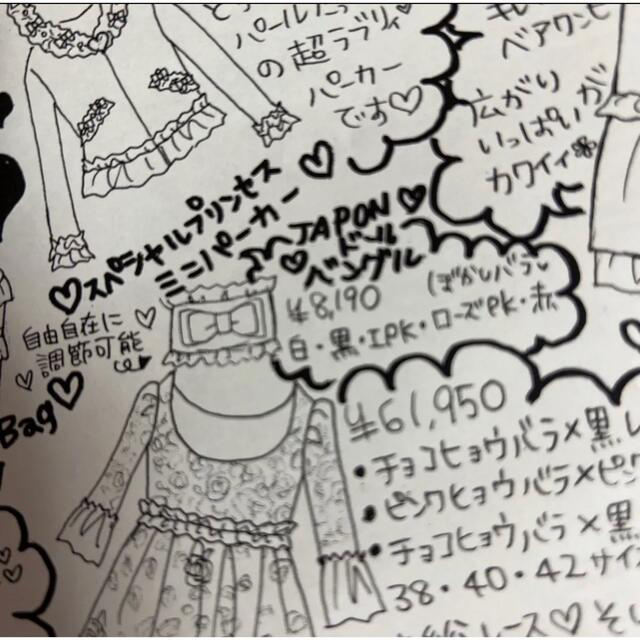 パールたっ
の超ラブリィ
パーカー
です♡
ベアワンピ
広がり
いっぱいが
カワイイ
♡スペシャルプリンセス
ミニパーカー♡
JAPON♡
ドール
♡バングル
¥8,190
ぼかしバラ
白・黒・IPK・ローズPK・赤
自由自在に♡
調節可能
♡Bag♡
¥61,950
・チョコヒョウバラ×黒レ
・ピンクヒョウバラ×ピンク
・チョコヒョウバラ×黒
38・40・42サイズ
レース♡